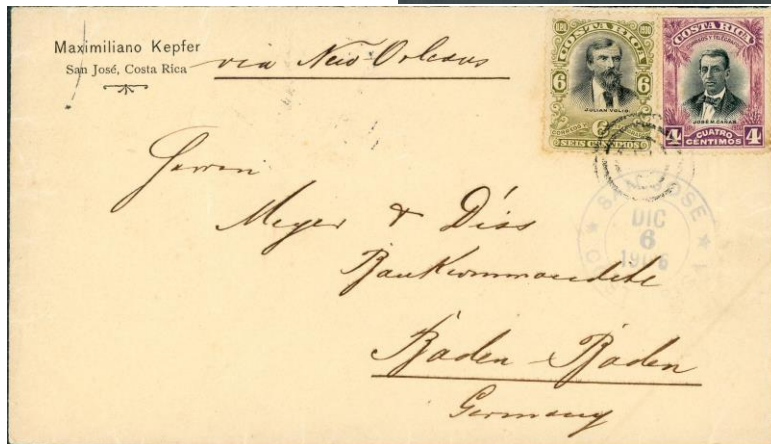 Maximiliano Kepfer
San José, Costa Rica
via New Orleans
COSTA RICA
6 6
JULIAN VOLIO
CORREOS
SEIS CENTIMOS
COSTA RICA
CORREOS Y TELEGRAFOS
JOSÉ M. CAÑAS
4 CUATRO CENTIMOS 4
SAN JOSE
DIC
6
Herren
Meyer & Diss
Bankkommandite
Baden-Baden
Germany